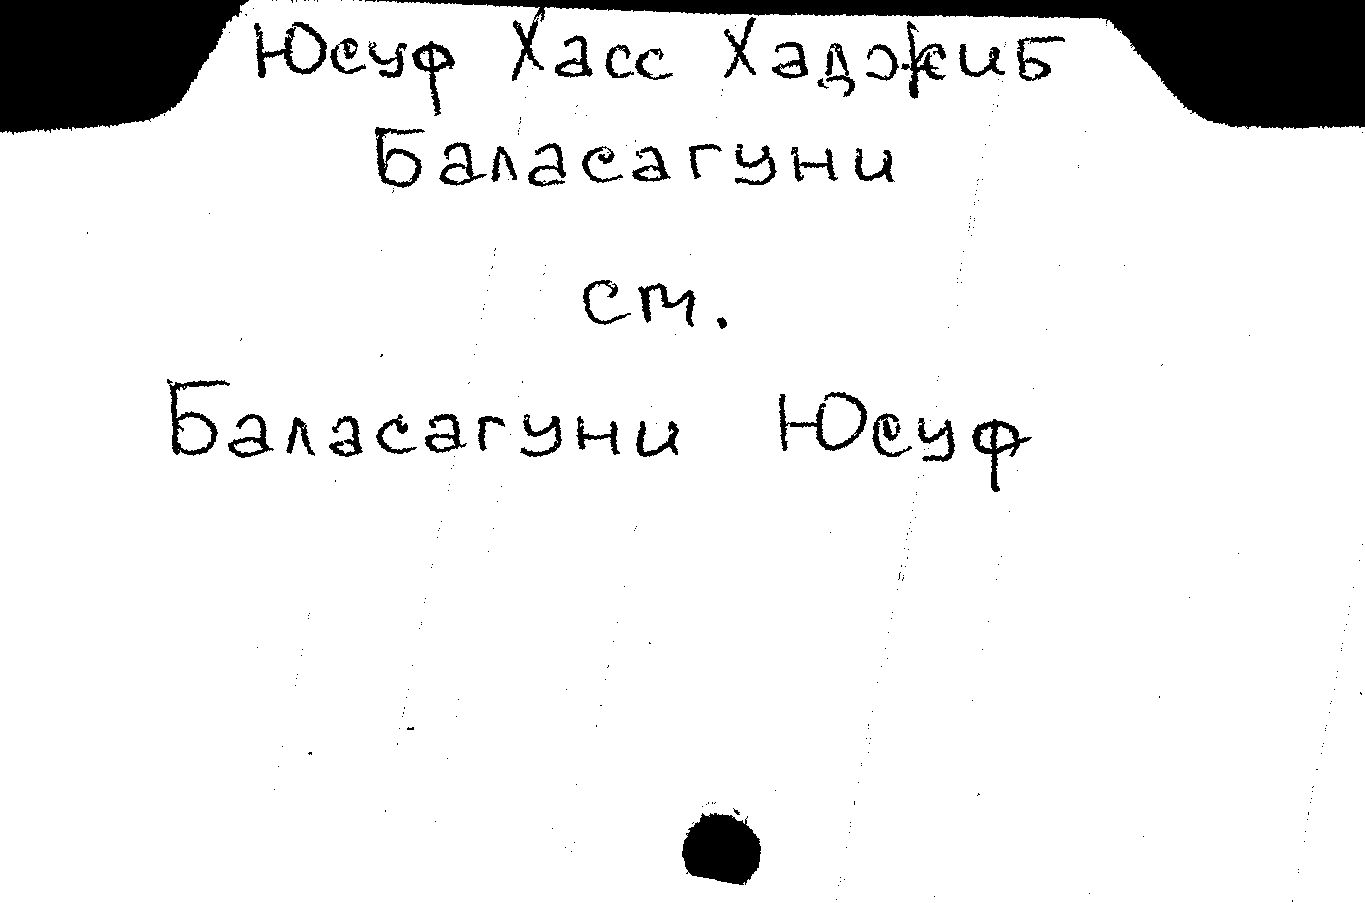 Юсуф Хасс Хаджиб
Баласагуни
ст.
Баласагуни Юсуф